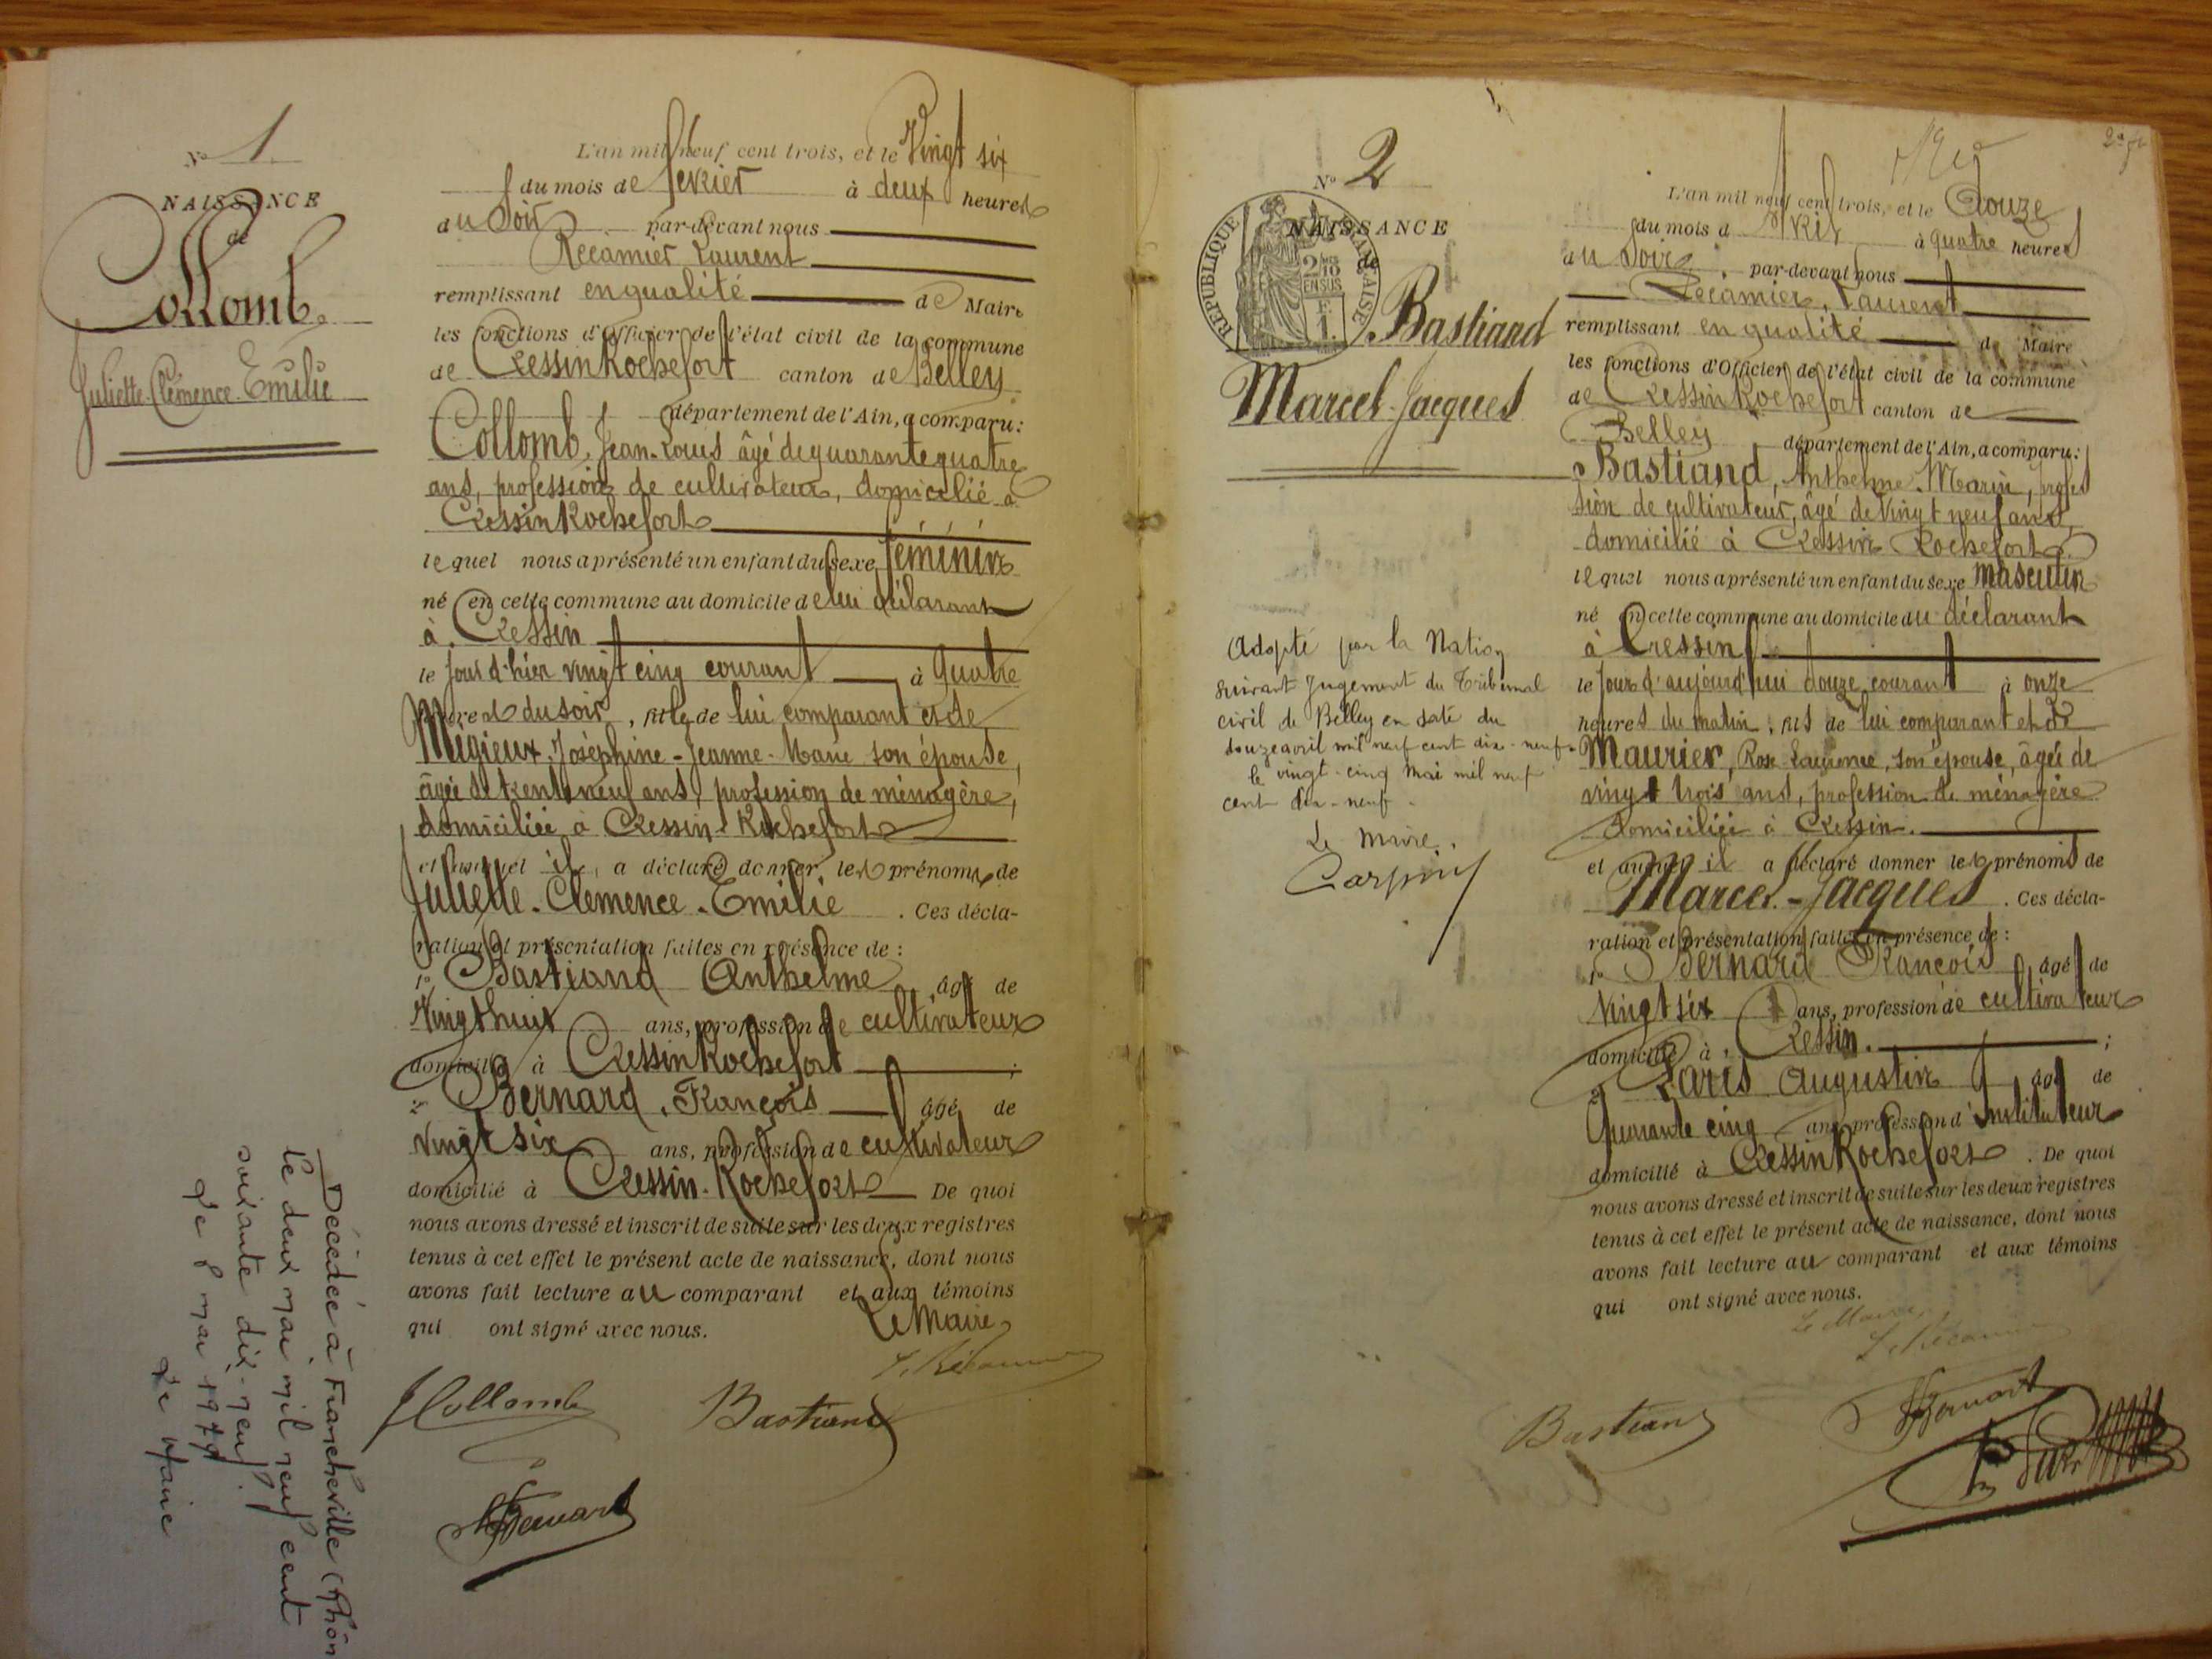 N° 1
NAISSANCE
de
Collomb
Juliette-Clémence-Emilie
L'an mil neuf cent trois, et le Vingt six
du mois de février à deux heures
du Soir par-devant nous
Récamier Laurent
remplissant en qualité de Maire
les fonctions d'Officier de l'état civil de la commune
de Cressin Rochefort canton de Belley
département de l'Ain, a comparu:
Collomb, Jean-Louis âgé de quarante quatre
ans, profession de cultivateur, domicilié à
Cressin Rochefort
lequel nous a présenté un enfant du sexe féminin
né en cette commune au domicile de lui déclarant
à Cressin
le jour d'hier vingt cinq courant à quatre
heures du soir, fille de lui comparant et de
Migieux, Joséphine-Jeanne-Marie son épouse,
âgée de trente neuf ans, profession de ménagère,
domiciliée à Cressin-Rochefort
et auquel il a déclaré donner les prénoms de
Juliette-Clémence-Emilie. Ces décla-
ration et présentation faites en présence de :
1° Bastiand Anthelme, âgé de
Vingt huit ans, profession de cultivateur
domicilié à Cressin Rochefort ;
2° Bernard, François âgé de
vingt six ans, profession de cultivateur
domicilié à Cressin-Rochefort De quoi
nous avons dressé et inscrit de suite sur les deux registres
tenus à cet effet le présent acte de naissance, dont nous
avons fait lecture au comparant et aux témoins
qui ont signé avec nous.
Le Maire
L. Récamier
J Collomb
Bastiand
F Bernard
Décédée à Francheville (Rhôn
le deux mai mil neuf cent
soixante dix-neuf.
Le 8 mai 1979
Le Maire
N° 2
NAISSANCE
de
RÉPUBLIQUE FRANÇAISE
2/10
EN SUS
Bastiand
Marcel-Jacques
Adopté par la Nation
suivant Jugement du Tribunal
civil de Belley en date du
douze avril mil neuf cent dix-neuf.
le vingt-cinq Mai mil neuf
cent dix-neuf.
Le Maire,
L'an mil neuf cent trois, et le Douze
du mois d'Avril à quatre heures
du Soir, par-devant nous
Récamier, Laurent
remplissant en qualité de Maire
les fonctions d'Officier de l'état civil de la commune
de Cressin Rochefort canton de
Belley département de l'Ain, a comparu:
Bastiand, Anthelme-Marin, profes
sion de cultivateur, âgé de vingt neuf ans,
domicilié à Cressin Rochefort
lequel nous a présenté un enfant du sexe masculin
né en cette commune au domicile du déclarant
à Cressin
le jour d'aujourd'hui douze courant à onze
heures du matin, fils de lui comparant et de
Maurier, Rose Laurence, son épouse, âgée de
vingt trois ans, profession de ménagère
domiciliée à Cressin.
et auquel il a déclaré donner les prénoms de
Marcel-Jacques. Ces décla-
ration et présentation faites en présence de :
1° Bernard François, âgé de
vingt six ans, profession de cultivateur
domicilié à Cressin. ;
2° Paris Augustin âgé de
Quarante cinq ans, profession d'Instituteur
domicilié à Cressin Rochefort. De quoi
nous avons dressé et inscrit de suite sur les deux registres
tenus à cet effet le présent acte de naissance, dont nous
avons fait lecture au comparant et aux témoins
qui ont signé avec nous.
Le Maire,
L. Récamier
Bastiand
F Bernard